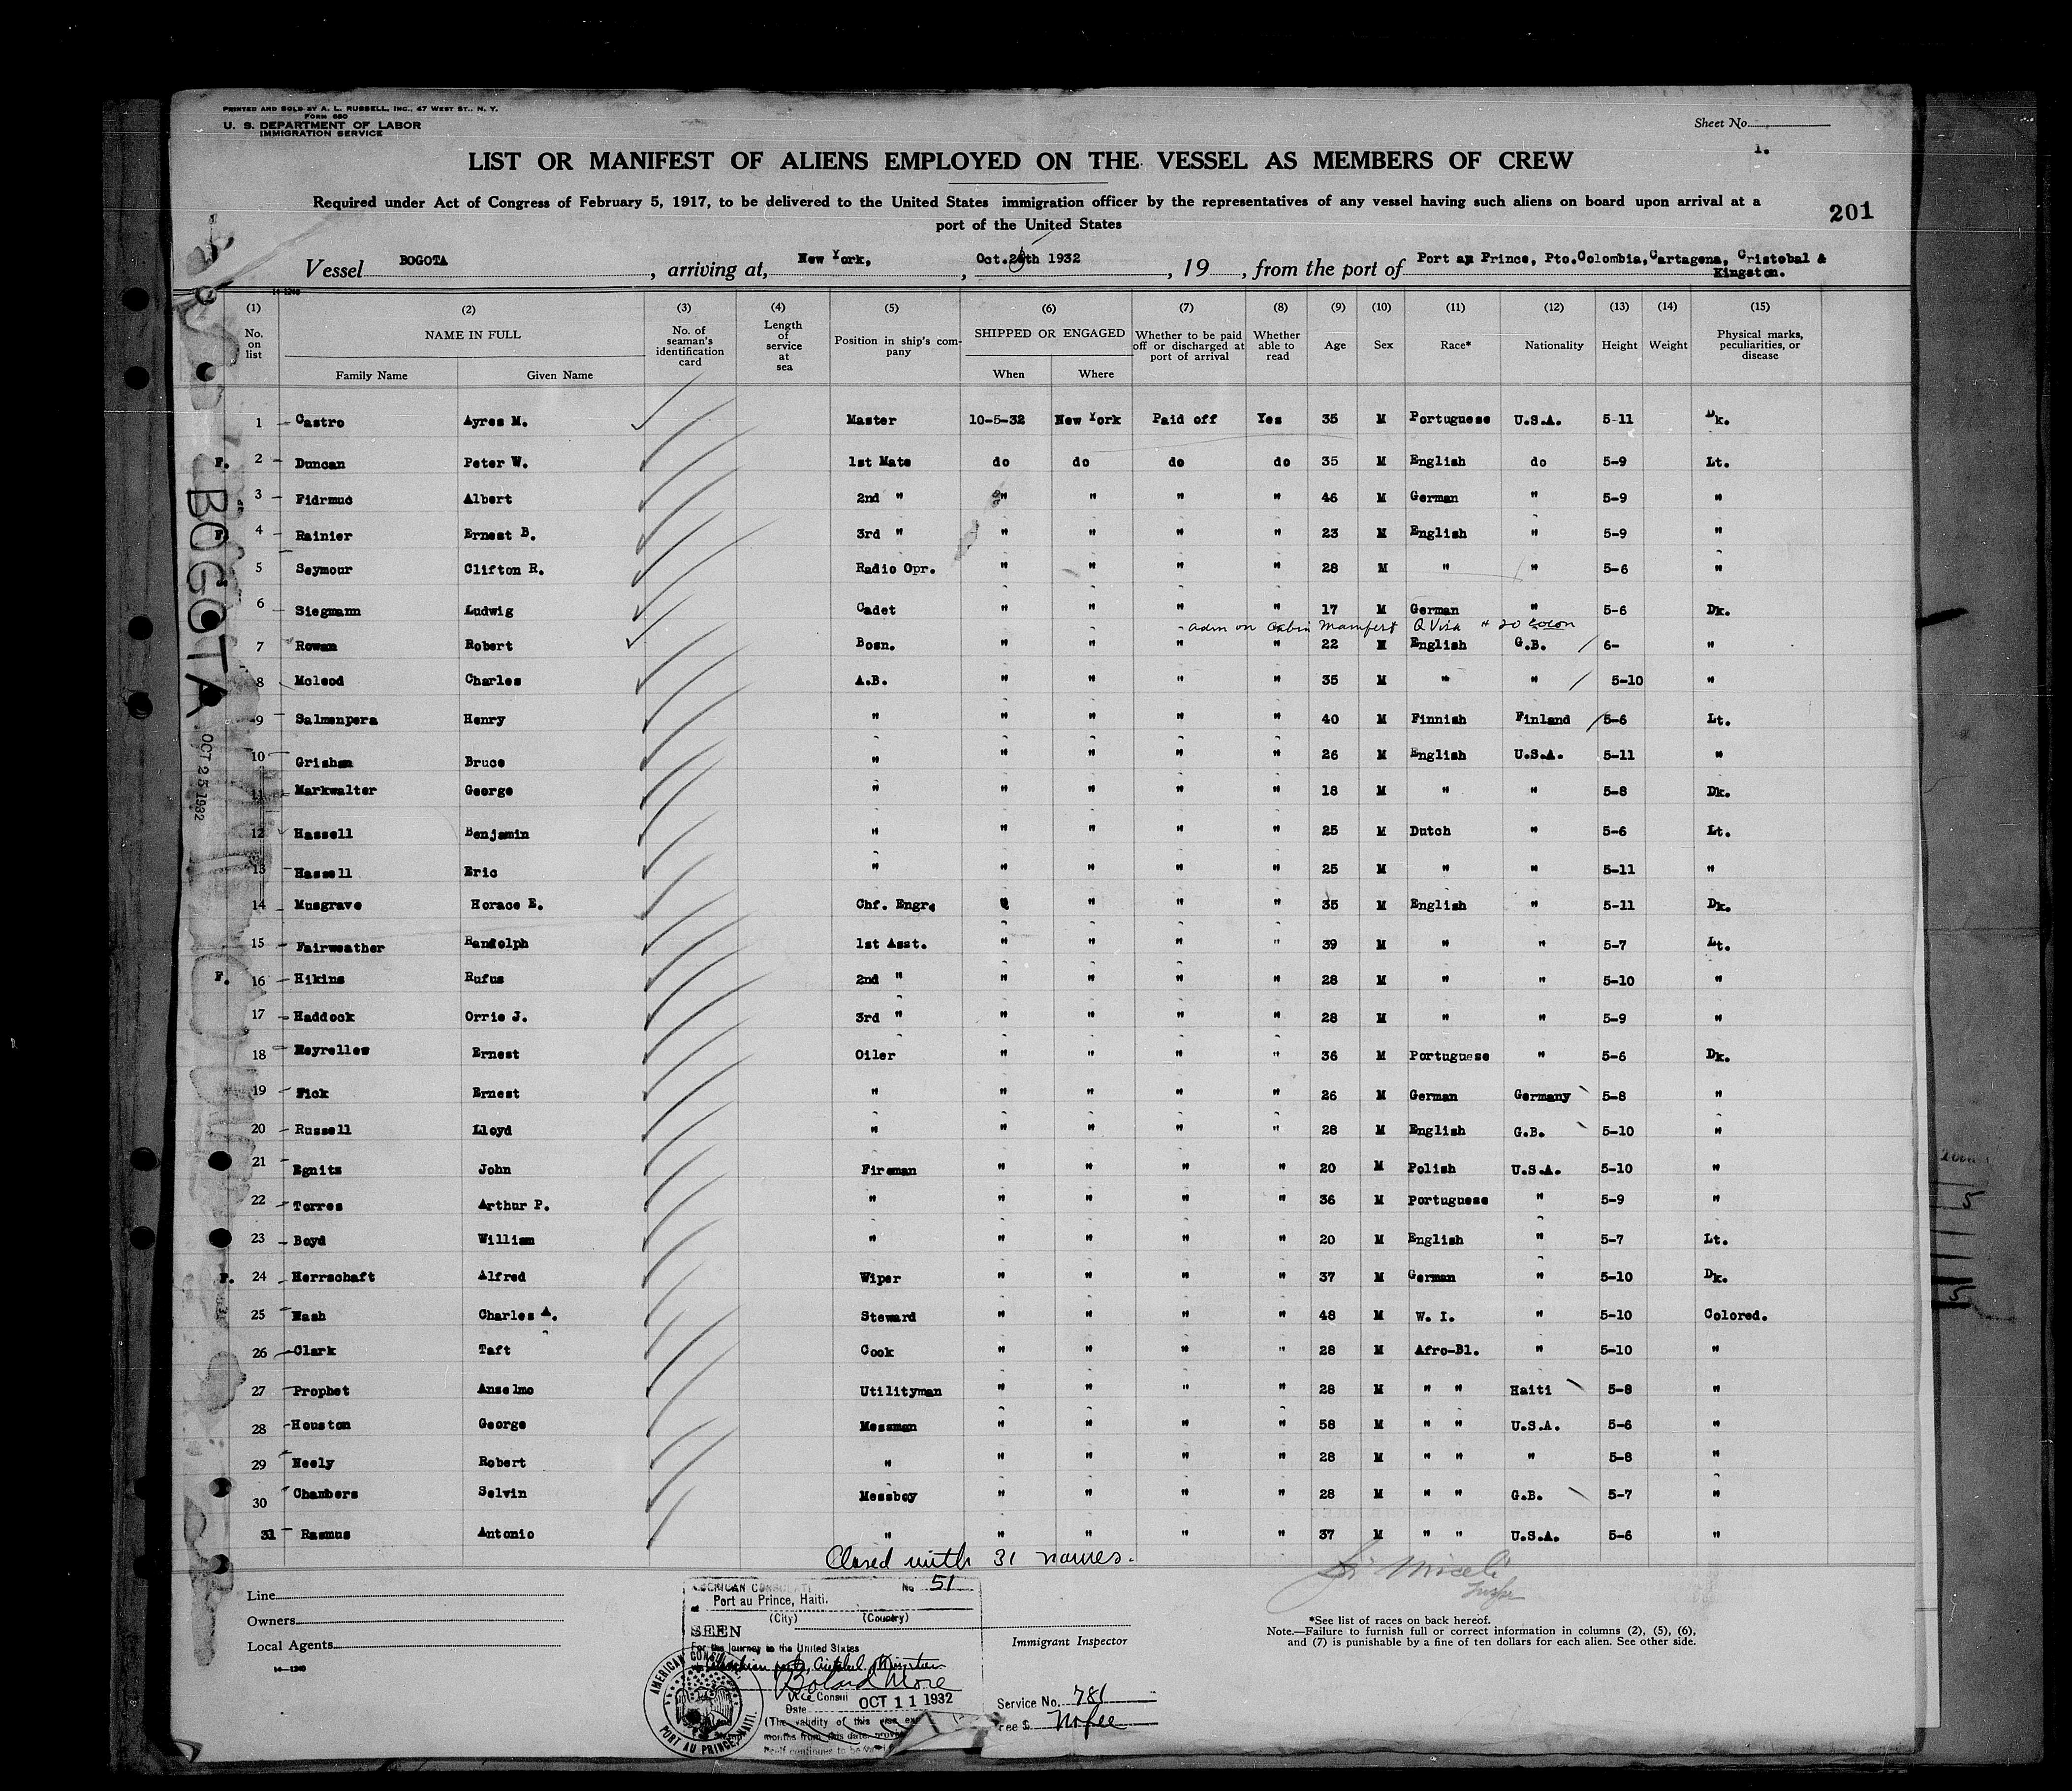 PRINTED AND SOLD BY A. L. RUSSELL, INC., 47 WEST ST., N. Y.
FORM 680
U. S. DEPARTMENT OF LABOR
IMMIGRATION SERVICE
Sheet No.
1.
LIST OR MANIFEST OF ALIENS EMPLOYED ON THE VESSEL AS MEMBERS OF CREW
Required under Act of Congress of February 5, 1917, to be delivered to the United States immigration officer by the representatives of any vessel having such aliens on board upon arrival at a
port of the United States
201
Vessel BOGOTA, arriving at, New York, Oct. 25th 1932, 19, from the port of Port au Prince, Pto.Colombia, Cartagena, Cristobal &
Kingston.
14-1240
(1) (2) (3) (4) (5) (6) (7) (8) (9) (10) (11) (12) (13) (14) (15)
No. on list NAME IN FULL No. of seaman's identification card Length of service at sea Position in ship's company SHIPPED OR ENGAGED Whether to be paid off or discharged at port of arrival Whether able to read Age Sex Race* Nationality Height Weight Physical marks, peculiarities, or disease
Family Name Given Name When Where
1 Castro Ayres M. Master 10-5-32 New York Paid off Yes 35 M Portuguese U.S.A. 5-11 Dk.
F. 2 Duncan Peter W. 1st Mate do do do do 35 M English do 5-9 Lt.
3 Fidrmuc Albert 2nd " " " " " 46 M German " 5-9 "
F 4 Rainier Ernest B. 3rd " " " " " 23 M English " 5-9 "
5 Seymour Clifton R. Radio Opr. " " " " 28 M " " 5-6 "
6 Siegmann Ludwig Cadet " " " " 17 M German " 5-6 Dk.
adm on Cabin Manifest Q Visa # 20
7 Rowan Robert Bosn. " " " " 22 M English G.B. 6- "
8 Mcleod Charles A.B. " " " " 35 M " " 5-10 "
9 Salmenpera Henry " " " " " 40 M Finnish Finland 5-6 Lt.
10 Grisham Bruce " " " " " 26 M English U.S.A. 5-11 "
11 Markwalter George " " " " " 18 M " " 5-8 Dk.
12 Hassell Benjamin " " " " " 25 M Dutch " 5-6 Lt.
13 Hassell Eric " " " " " 25 M " " 5-11 "
14 Musgrave Horace E. Chf. Engr. " " " " 35 M English " 5-11 Dk.
15 Fairweather Randolph 1st Asst. " " " " 39 M " " 5-7 Lt.
F. 16 Hikins Rufus 2nd " " " " " 28 M " " 5-10 "
17 Haddock Orrie J. 3rd " " " " " 28 M " " 5-9 "
18 Meyrelles Ernest Oiler " " " " 36 M Portuguese " 5-6 Dk.
19 Fick Ernest " " " " " 26 M German Germany 5-8 "
20 Russell Lloyd " " " " " 28 M English G.B. 5-10 "
21 Egnitz John Fireman " " " " 20 M Polish U.S.A. 5-10 "
22 Torres Arthur P. " " " " " 36 M Portuguese " 5-9 "
23 Boyd William " " " " " 20 M English " 5-7 Lt.
F. 24 Herrschaft Alfred Wiper " " " " 37 M German " 5-10 Dk.
25 Nash Charles A. Steward " " " " 48 M W. I. " 5-10 Colored.
26 Clark Taft Cook " " " " 28 M Afro-Bl. " 5-10 "
27 Prophet Anselmo Utilityman " " " " 28 M " " Haiti 5-8 "
28 Houston George Messman " " " " 58 M " " U.S.A. 5-6 "
29 Neely Robert " " " " " 28 M " " " 5-8 "
30 Chambers Selvin Messboy " " " " 28 M " " G.B. 5-7 "
31 Rasmus Antonio " " " " " 37 M " " U.S.A. 5-6 "
BOGOTA
OCT 25 1932
Closed with 31 names.
Line
Owners
Local Agents
14-1240
AMERICAN CONSULATE No 51
Port au Prince, Haiti.
(City) (Country)
SEEN
For the journey to the United States
Vice Consul
Date OCT 11 1932
(The validity of this visa
months from this date,
itself continues to be
AMERICAN CONSUL
PORT AU PRINCE, HAITI.
Immigrant Inspector
Service No. 781
Fee $ No fee
*See list of races on back hereof.
Note.—Failure to furnish full or correct information in columns (2), (5), (6),
and (7) is punishable by a fine of ten dollars for each alien. See other side.